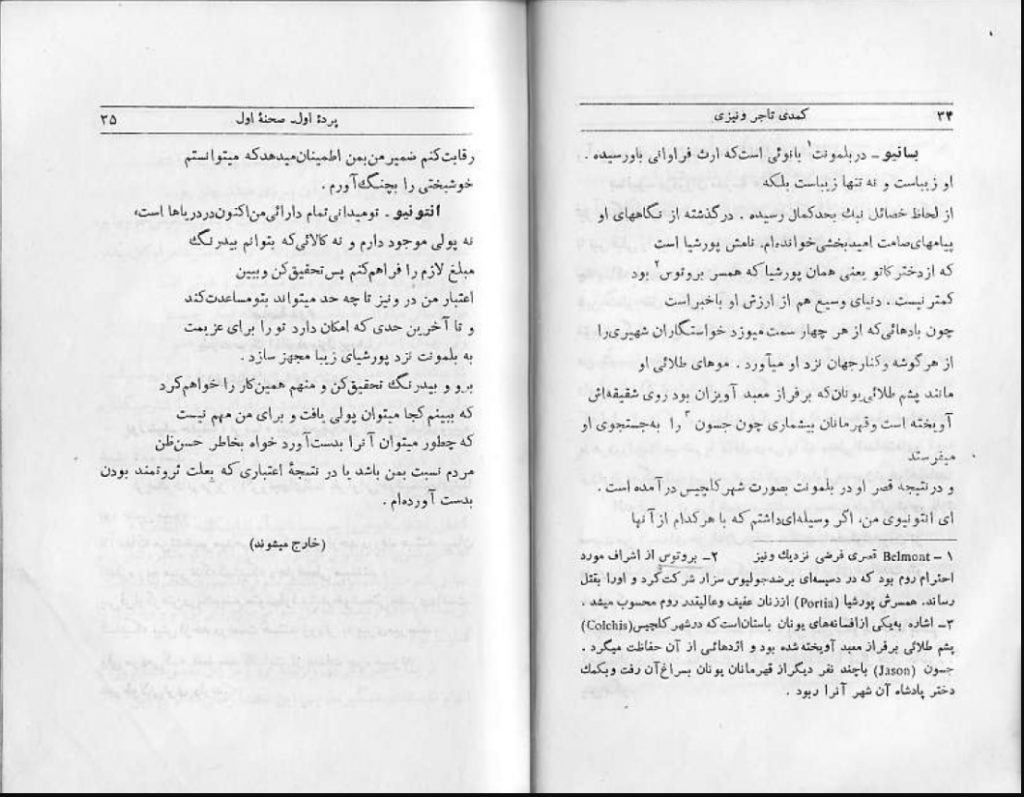 ۳۴
کمدی تاجر ونیزی
بسانیو ـ در بلمونت۱ بانوئی است‌که ارث فراوانی باورسیده .
او زیباست و نه تنها زیباست بلکه
از لحاظ خصائل نیك بحدکمال رسیده . درگذشته از نگاههای او
پیامهای‌صامت امیدبخشی‌خوانده‌ام. نامش پورشیا است
که ازدخترکاتو یعنی همان پورشیاکه همسر بروتوس۲ بود
کمتر نیست . دنیای وسیع هم از ارزش او باخبراست
چون بادهائی‌که از هر چهار سمت‌میوزد خواستگاران شهیری‌را
از هرگوشه وکنارجهان نزد او میآورد . موهای طلائی او
مانند پشم طلائی‌یونان‌که برفراز معبد آویزان بود روی شقیقه‌اش
آویخته است وقهرمانان بیشماری چون جسون۳ را به‌جستجوی او
میفرستد
و درنتیجه قصر او در بلمونت بصورت شهرکلچیس درآمده است .
ای انتونیوی من، اگر وسیله‌ای‌داشتم که با هرکدام از آنها
۱ ـ Belmont قصری فرضی نزدیك ونیز ۲ـ بروتوس از اشراف مورد
احترام روم بود که در دسیسه‌ای برضدجولیوس سزار شرکت‌کرد و اورا بقتل
رساند. همسرش پورشیا (Portia) اززنان عفیف وعالیقدر روم محسوب میشد .
۳ـ اشاره به‌یکی ازافسانه‌های یونان باستان‌است‌که درشهر کلچیس(Colchis)
پشم طلائی برفراز معبد آویخته‌شده بود و اژدهائی از آن حفاظت میکرد .
جسون (Jason) باچند نفر دیگراز قهرمانان یونان بسراغ‌آن رفت وبکمك
دختر پادشاه آن شهر آنرا ربود .
پردهٔ اول. صحنهٔ اول
۳۵
رقابت‌کنم ضمیر من‌بمن اطمینان‌میدهدکه میتوانستم
خوشبختی را بچنگ‌آورم .
انتونیو . تومیدانی‌تمام دارائی‌من‌اکنون‌دردریاها است،
نه پولی موجود دارم و نه کالائی‌که بتوانم بیدرنگ
مبلغ لازم را فراهم‌کنم پس‌تحقیق‌کن وببین
اعتبار من در ونیز تا چه حد میتواند بتومساعدت‌کند
و تا آخرین حدی که امکان دارد تو را برای عزیمت
به بلمونت نزد پورشیای زیبا مجهز سازد .
برو و بیدرنگ تحقیق‌کن و منهم همین‌کار را خواهم‌کرد
که ببینم‌کجا میتوان پولی یافت و برای من مهم نیست
که چطور میتوان آنرا بدست‌آورد خواه بخاطر حسن‌ظن
مردم نسبت بمن باشد یا در نتیجهٔ اعتباری که بعلت ثروتمند بودن
بدست آورده‌ام .
(خارج میشوند)